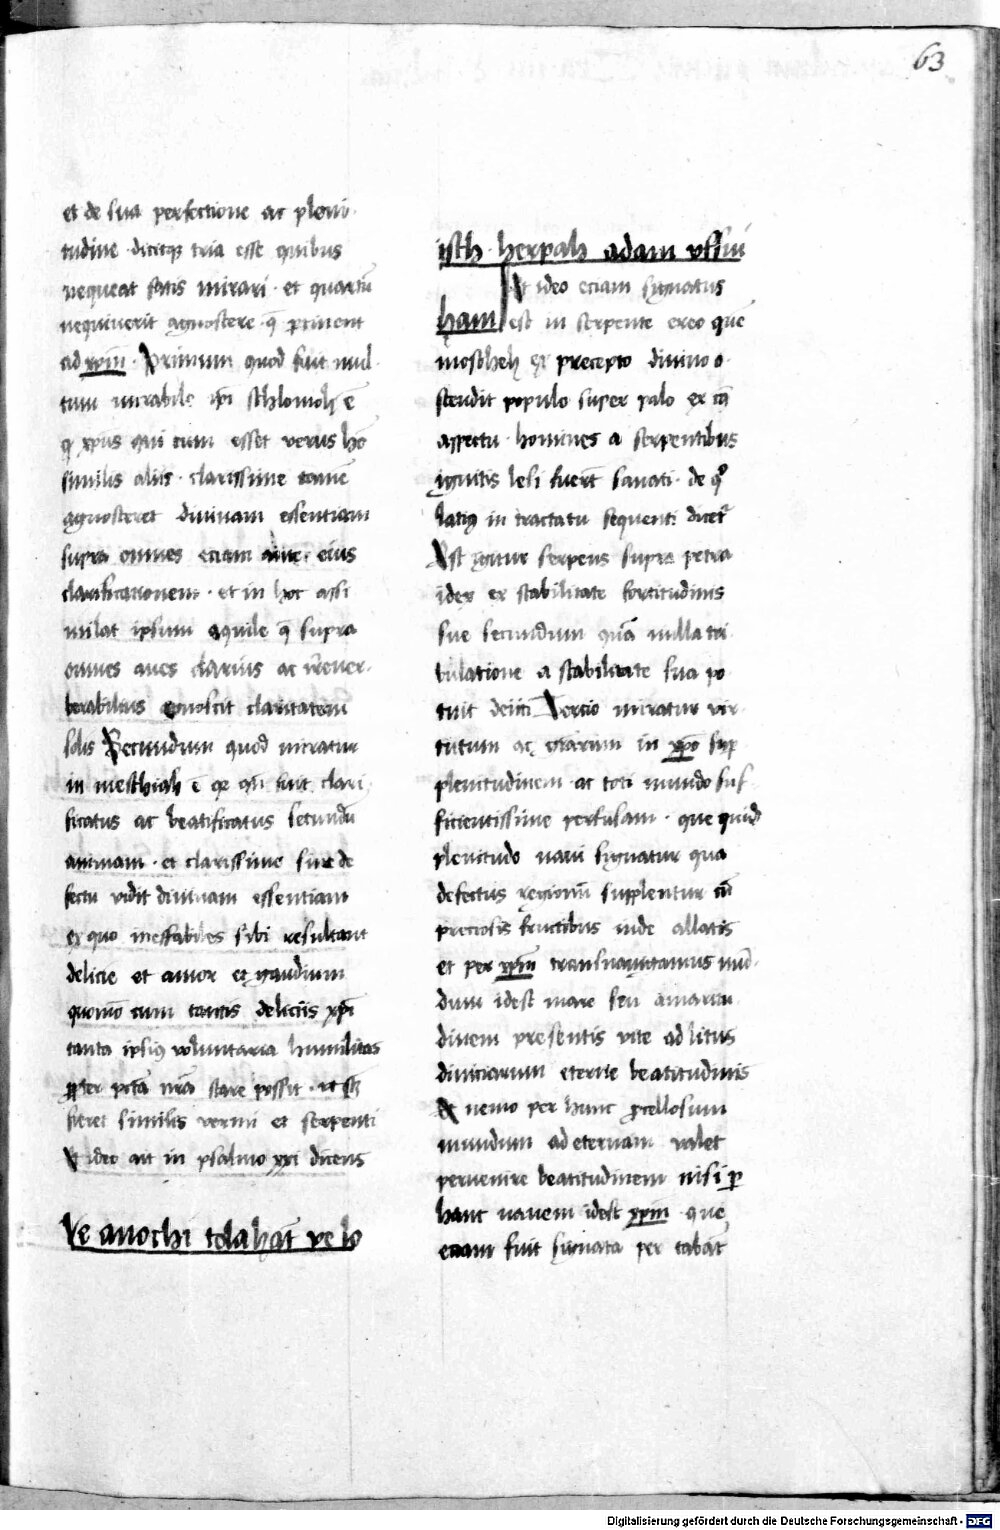 63
et de sua perfectione ac pleni
tudine · dicitque tria esse quibus
nequeat satis mirari · et quartū
nequiverit agnoscere · q̄ ꝑtinent
ad xp̄m · Primum quod fuit mul
tum mirabile ip̄i schlomoh ē
q xp̄us qui cum esset verus hō
similis aliis · clarissime tamē
agnosceret divinam essentiam
supra omnes eciam ante eius
clarificationem · et in hoc assi
milat ipsum aquile q̄ supra
omnes aves clarius ac irrever
berabilius agnoscit claritatem
solis Secundum quod miratur
in meschiah ē qꝛ qn̄ fuit clari
ficatus ac beatificatus secundū
animam · et clarissime sine de
fectu vidit divinam essentiam
ex quo ineffabiles sibi resultant
delicie et amor et gaudium
quomō cum tantis deliciis xp̄i
tanta ipsius voluntaria humilitas
ꝓpter pctā nr̄a stare possit · ut
fieret similis vermi et serpenti
Et ideo ait in psalmo xxi dicens
Ve anochi tolahat ve lo
isch · herpah adam ussui
Et ideo eciam signatus
ham est in serpente ereo quē
moscheh ex precepto divino o
stendit populo super palo ex cꝰ
aspectu · homines a serpentibus
ignitis lesi fuerūt sanati · de qͦ
latiꝰ in tractatu sequenti dicetʳ
Est igitur serpens supra petra
idest ex stabilitate fortitudinis
sue secundum quā nulla tri
bulatione a stabilitate sua po
tuit deiici Tercio miratur vir
tutum ac gratiarum in xp̄o
plenitudinem ac toti mundo suf
ficientissime perfusam · que quid
plenitudo navi signatur qua
defectus regionū supplentur cū
preciosis fructibus inde allatis
et per xp̄m transnavigamus mū
dum idest mare seu amaritu
dinem presentis vite ad litus
divitiarum eterne beatitudinis
Et nemo per hunc ꝓcellosum
mundum ad eternam valet
pervenire beatitudinem nisi ꝑ
hanc navem idest xp̄m que
eciam fuit signata per tabat
Digitalisierung gefördert durch die Deutsche Forschungsgemeinschaft - DFG